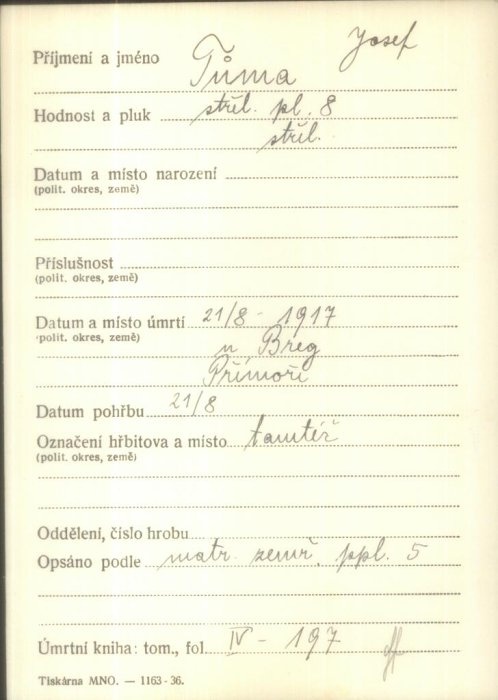 Josef
Příjmení a jméno Tůma
Hodnost a pluk střel. pl. 8
střel.
Datum a místo narození
(polit. okres, země)
Příslušnost
(polit. okres, země)
Datum a místo úmrtí 21/8 - 1917
(polit. okres, země) u Breg
Přímoří
Datum pohřbu 21/8
Označení hřbitova a místo tamtéž
(polit. okres, země)
Oddělení, číslo hrobu
Opsáno podle matr. zemř. ppl. 5
Úmrtní kniha: tom., fol. IV - 197
Tiskárna MNO. — 1163-36.